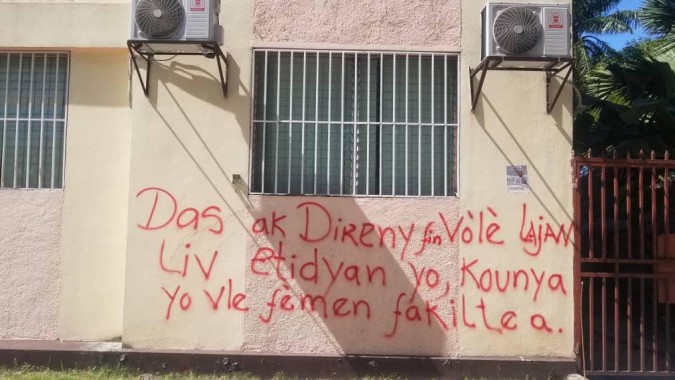 Das ak Direny fin Vòlè LAJAN
Liv etidyan yo, Kounya
yo vle fèmen fakilte a.